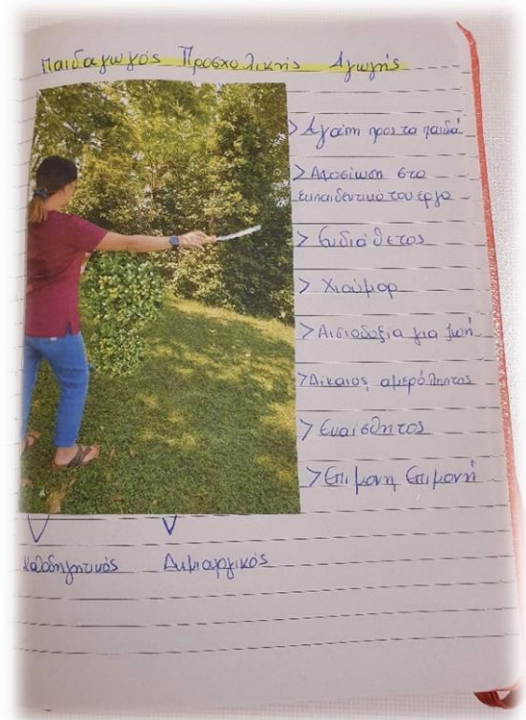 Παιδαγωγός Προσχολικής Αγωγής
> Αγάπη προς τα παιδιά
> Αφοσίωση στο
εκπαιδευτικό του έργο
> Ευδιάθετος
> Χιούμορ
> Αισιοδοξία για ζωή
> Δίκαιος, αμερόληπτος
> Ευαίσθητος
> Επιμονή Επιμονή
Καθοδηγητικός Δημιουργικός